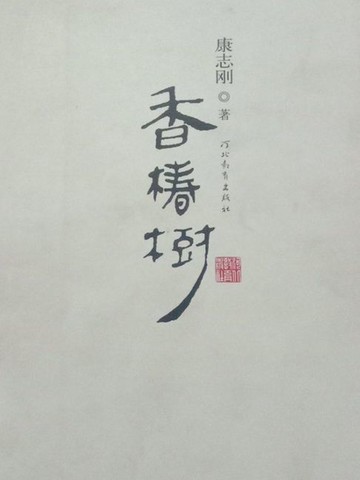 康志刚 ◎ 著
香椿樹
河北教育出版社